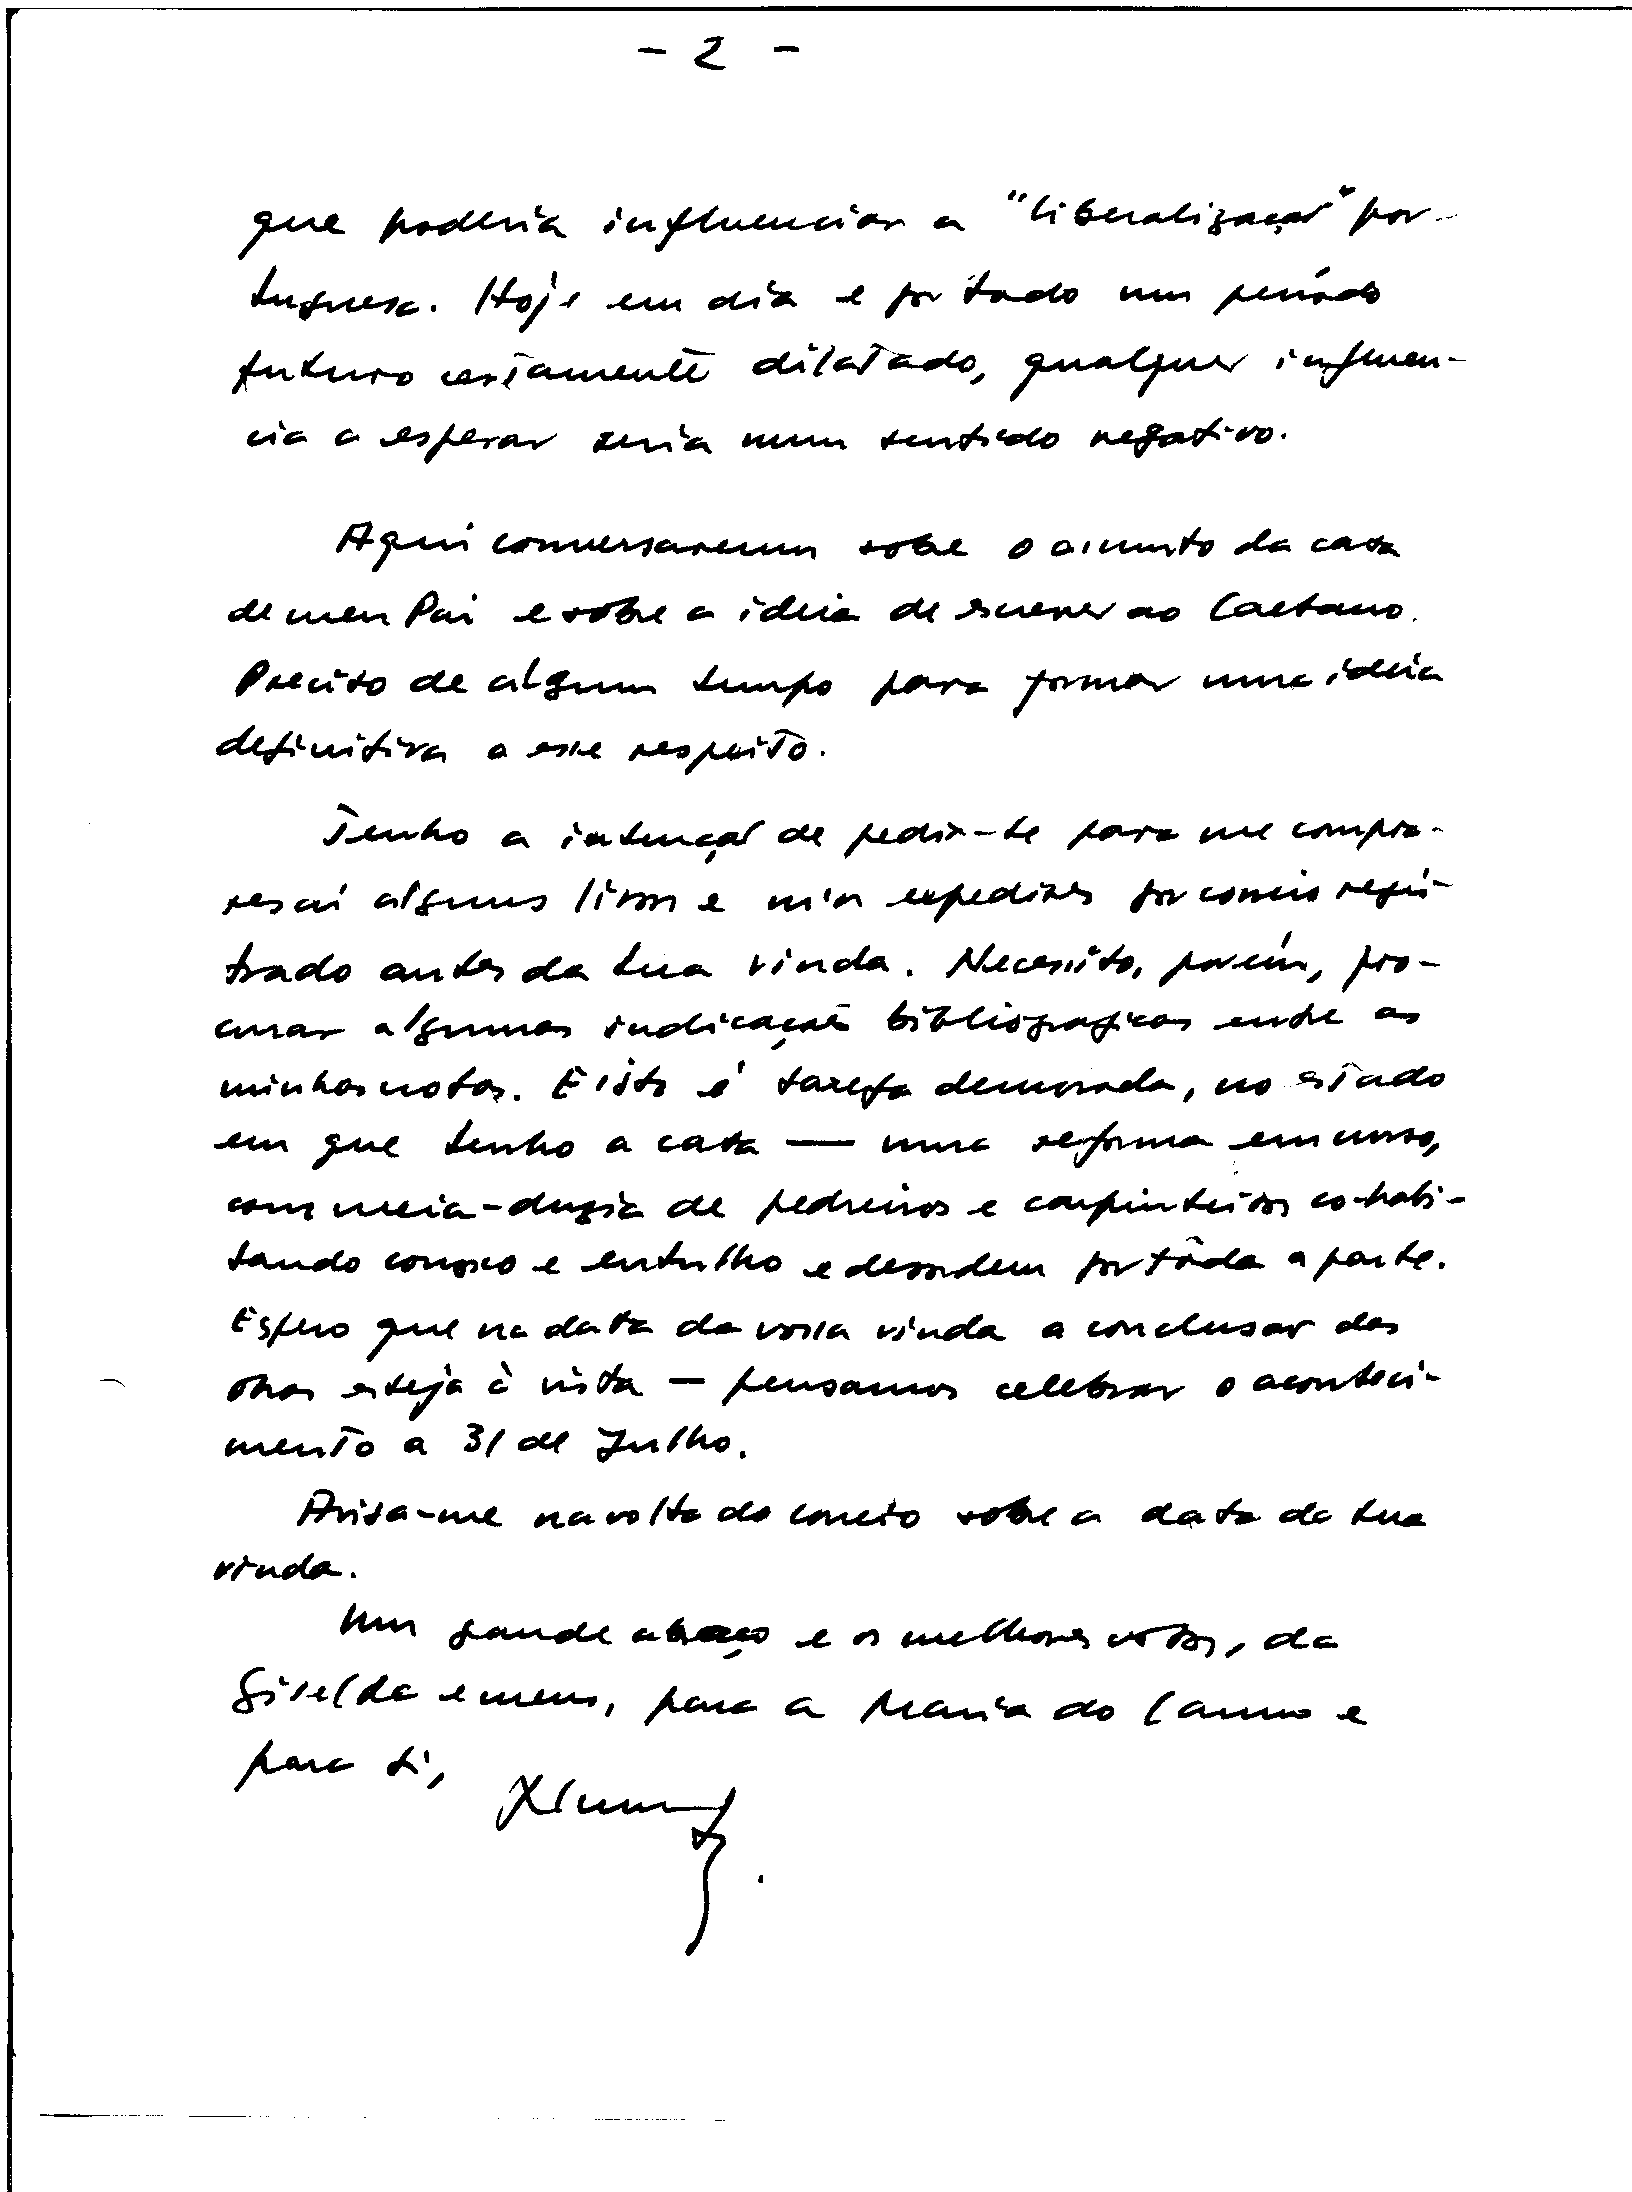 - 2 -
que poderia influenciar a "liberalização" por-
tuguesa. Hoje em dia e por todo um período
futuro certamente dilatado, qualquer influen-
cia a esperar seria num sentido negativo.
Aqui conversaremos sobre o assunto da casa
de meu Pai e sobre a ideia de escrever ao Caetano.
Preciso de algum tempo para formar uma ideia
definitiva a esse respeito.
Tenho a intenção de pedir-te para me compra-
res aí alguns livros e m'os expedires por correio regis-
trado antes da tua vinda. Necessito, porém, pro-
curar algumas indicações bibliograficas entre as
minhas notas. E isto é tarefa demorada, no estado
em que tenho a casa — uma reforma em curso,
com meia-duzia de pedreiros e carpinteiros co-habi-
tando conosco e entulho e desordem por tôda a parte.
Espero que na data da vossa vinda a conclusão das
obras esteja à vista — pensamos celebrar o aconteci-
mento a 31 de Julho.
Avisa-me na volta do correio sobre a data da tua
vinda.
Um grande abraço e os melhores votos, da
Giselda e meus, para a Maria do Carmo e
para ti,